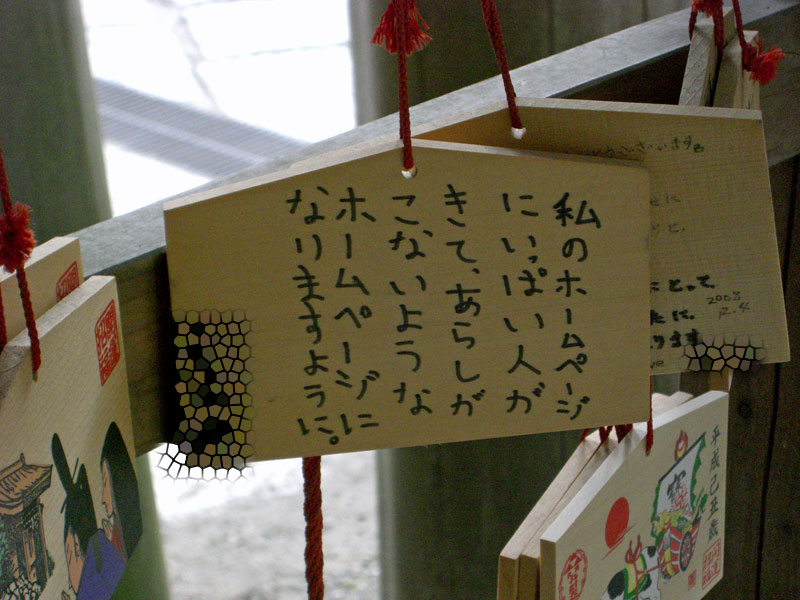 私のホームページ
にいっぱい人が
きて、あらしが
こないような
ホームページに
なりますように。
ございます。
とって、
2003
12.4
平成己丑歳